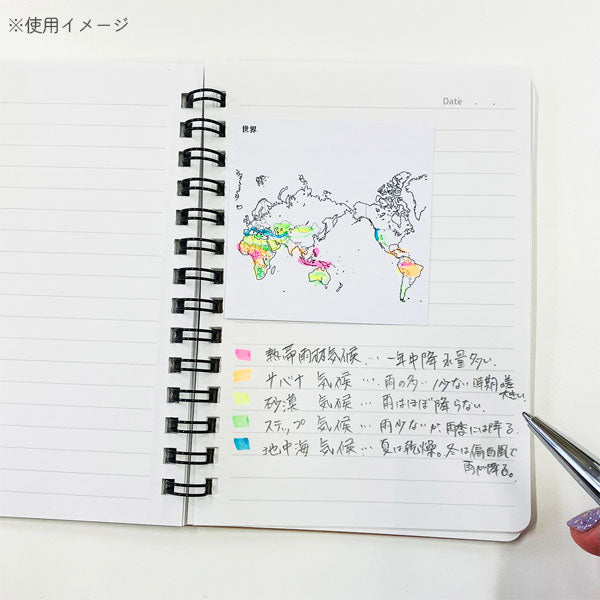 ※使用イメージ
Date . .
世界
熱帯雨林気候…一年中降水量多い。
サバナ 気候…雨の多い/少ない時期の差大きい。
砂漠 気候…雨はほぼ降らない。
ステップ 気候…雨少ないが、雨季には降る。
地中海 気候…夏は乾燥。冬は偏西風で
雨が降る。